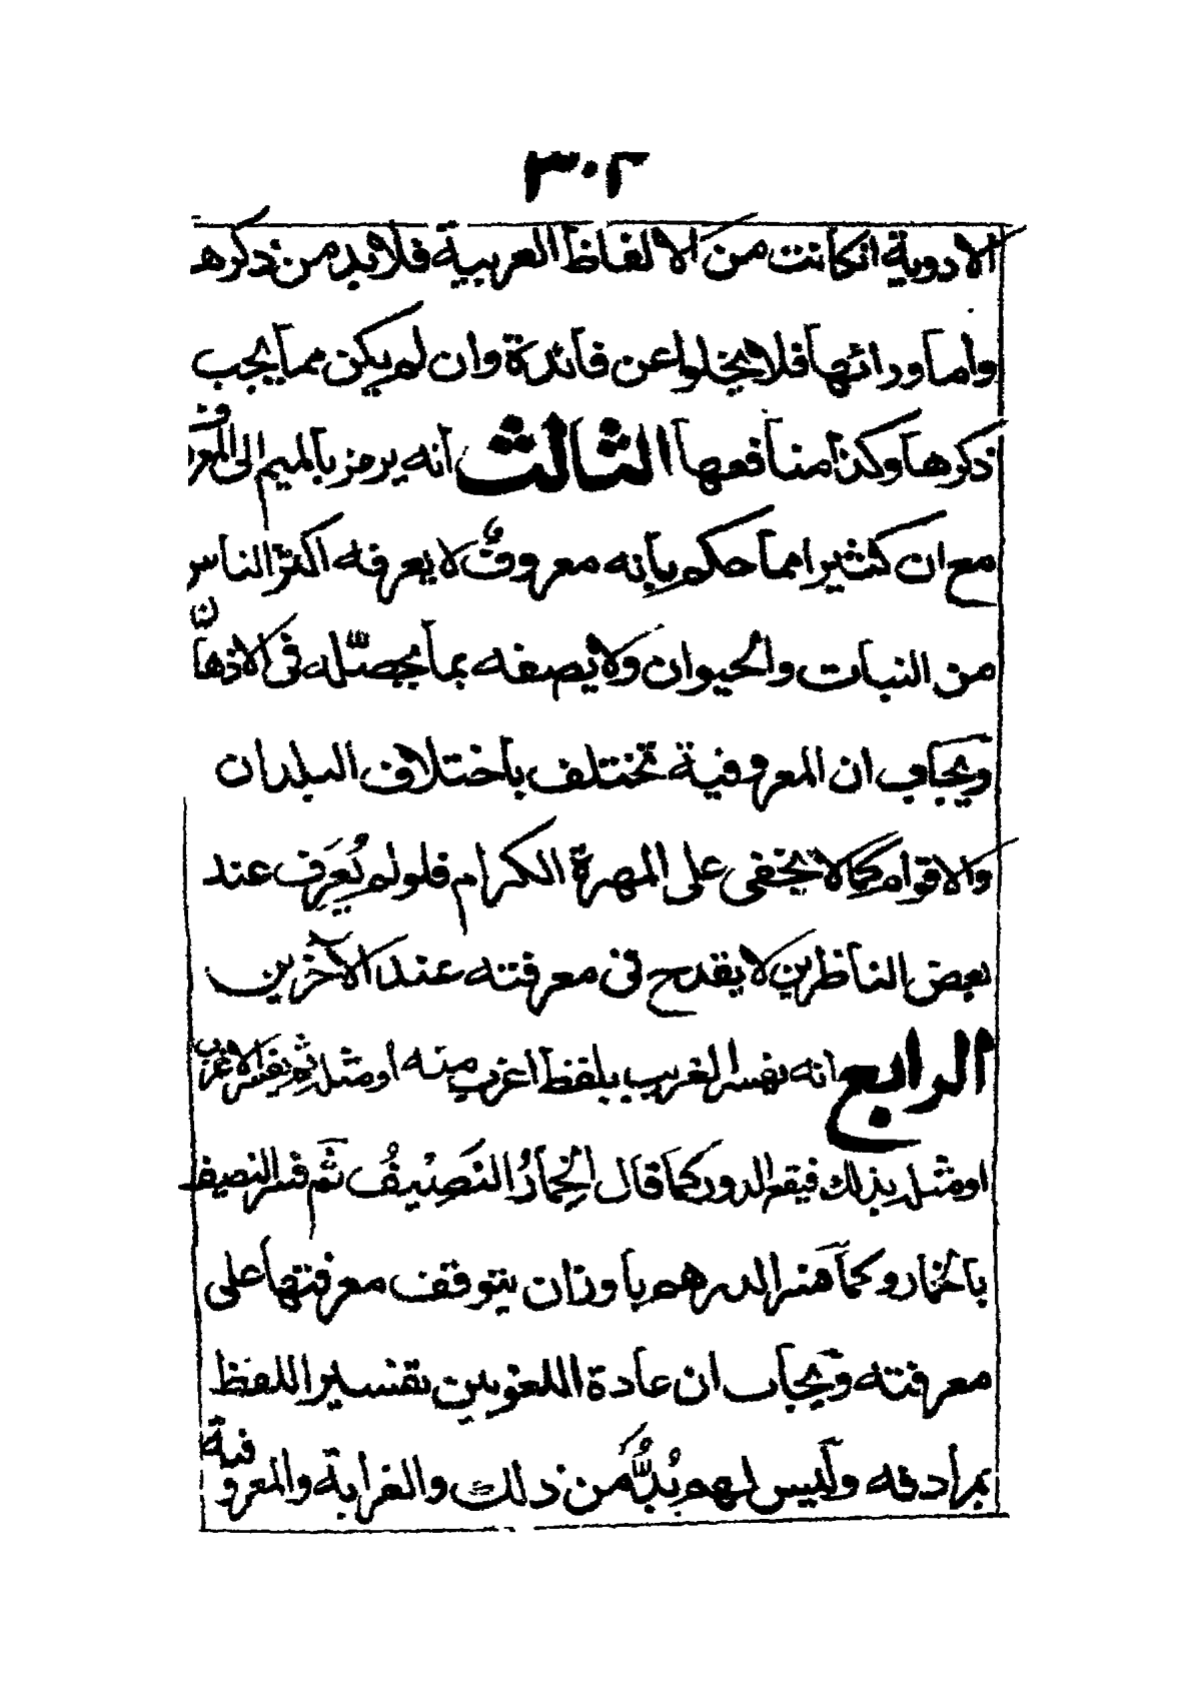 ٣٠٢
الادوية انكانت من الالفاظ العربية فلا بد من ذكرها
واما ورائها فلا يخلوا عن فائدة وان لم يكن مما يجب
ذكرها وكذا منافعها الثالث انه يرمز بالميم الى المعروف
مع ان كثيرا مما حكم بانه معروفٌ لا يعرفه اكثر الناس
من النبات والحيوان ولا يصفه بما يحصّله فى الاذهان
ويجاب ان المعروفية تختلف باختلاف البلدان
والاقوام كما لا يخفى على المهرة الكرام فلو لم يُعرَف عند
بعض الناظرين لا يقدح فى معرفته عند الآخرين
الرابع انه يفسر الغريب بلفظ اغرب منه او مثله ثم يفسر الاغرب
او مثله بذلك فيقع الدور كما قال الخِمارُ النَصِيفُ ثم فسر النصيف
بالخمار وكما فسر الدرهم باوزان يتوقف معرفتها على
معرفته ويجاب ان عادة اللغويين تفسير اللفظ
بمرادفه وليس لهم بُدٌّ من ذلك والغرابة والمعروفية